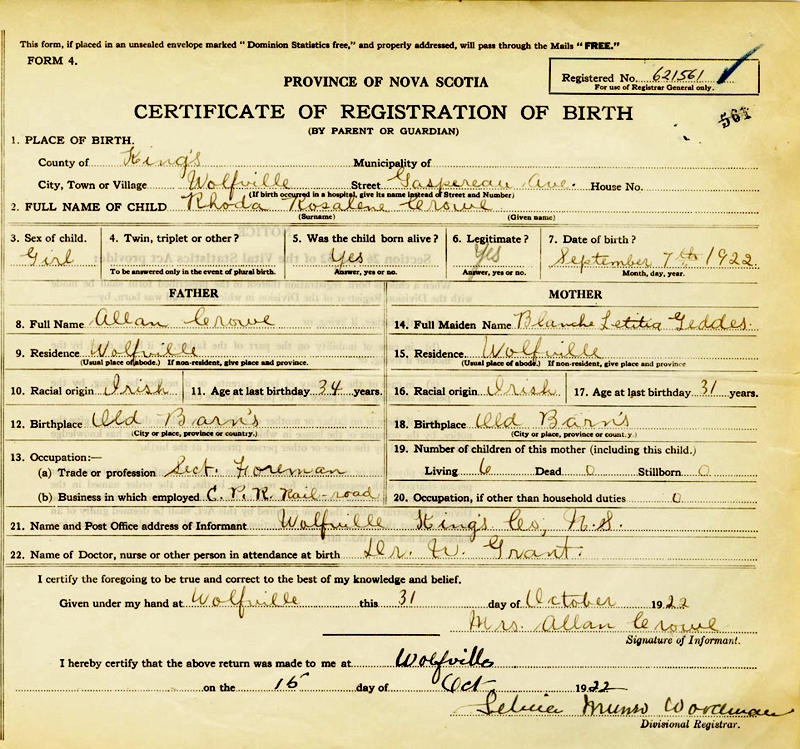 This form, if placed in an unsealed envelope marked "Dominion Statistics free," and properly addressed, will pass through the Mails "FREE."
FORM 4.
Registered No. 621561
For use of Registrar General only.
PROVINCE OF NOVA SCOTIA
561
CERTIFICATE OF REGISTRATION OF BIRTH
(BY PARENT OR GUARDIAN)
1. PLACE OF BIRTH.
County of King's Municipality of
City, Town or Village Wolfville Street Gaspereau Ave. House No.
(If birth occurred in a hospital, give its name instead of Street and Number)
2. FULL NAME OF CHILD Rhoda Rosalene Crowe
(Surname) (Given name)
3. Sex of child. 4. Twin, triplet or other? 5. Was the child born alive? 6. Legitimate? 7. Date of birth?
Girl Yes Yes September 7th 1922
To be answered only in the event of plural birth. Answer, yes or no. Answer, yes or no. Month, day, year.
FATHER MOTHER
8. Full Name Allan Crowe 14. Full Maiden Name Blanche Letitia Geddes.
9. Residence Wolfville 15. Residence Wolfville
(Usual place of abode.) If non-resident, give place and province. (Usual place of abode.) If non-resident, give place and province
10. Racial origin Irish 11. Age at last birthday 34 years. 16. Racial origin Irish 17. Age at last birthday 31 years.
12. Birthplace Old Barn's 18. Birthplace Old Barn's
(City or place, province or country.) (City or place, province or country.)
13. Occupation:— 19. Number of children of this mother (including this child.)
(a) Trade or profession Sect. Foreman Living 6 Dead 0 Stillborn 0
(b) Business in which employed C. P. R. Rail-road 20. Occupation, if other than household duties 0
21. Name and Post Office address of Informant Wolfville King's Co, N.S.
22. Name of Doctor, nurse or other person in attendance at birth Dr. W. Grant.
I certify the foregoing to be true and correct to the best of my knowledge and belief.
Given under my hand at Wolfville this 31 day of October 1922
Mrs. Allan Crowe
Signature of Informant.
I hereby certify that the above return was made to me at Wolfville
on the 15 day of Oct 1922
Munro Woodman
Divisional Registrar.